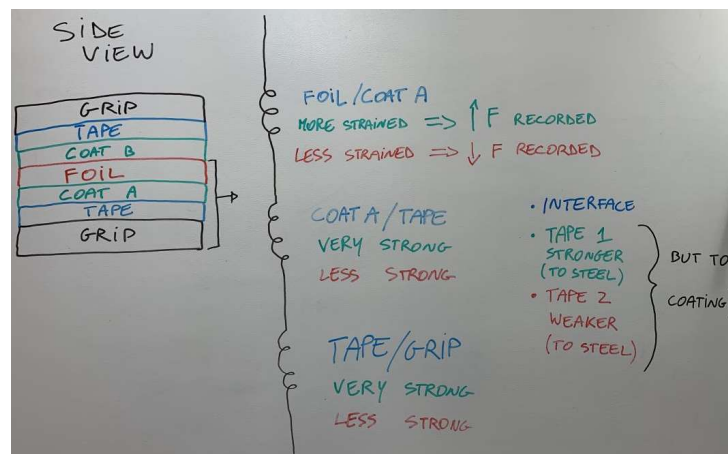 SiDE
ViEW
GRiP
TAPE
COAT B
FOIL
COAT A
TAPE
GRiP
FOiL/COAT A
MORE STRAINED => ↑ F RECORDED
LESS STRAINED => ↓ F RECORDED
COAT A/TAPE
VERY STRONG
LESS STRONG
TAPE/GRiP
VERY STRONG
LESS STRONG
• INTERFACE
• TAPE 1
STRONGER
(TO STEEL)
• TAPE 2
WEAKER
(TO STEEL)
BUT TO
COATING